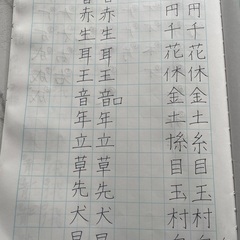 円千花休金土糸目玉村
円千花休金土目玉村
赤生耳王音年立草先犬
赤生耳王音年立草先犬